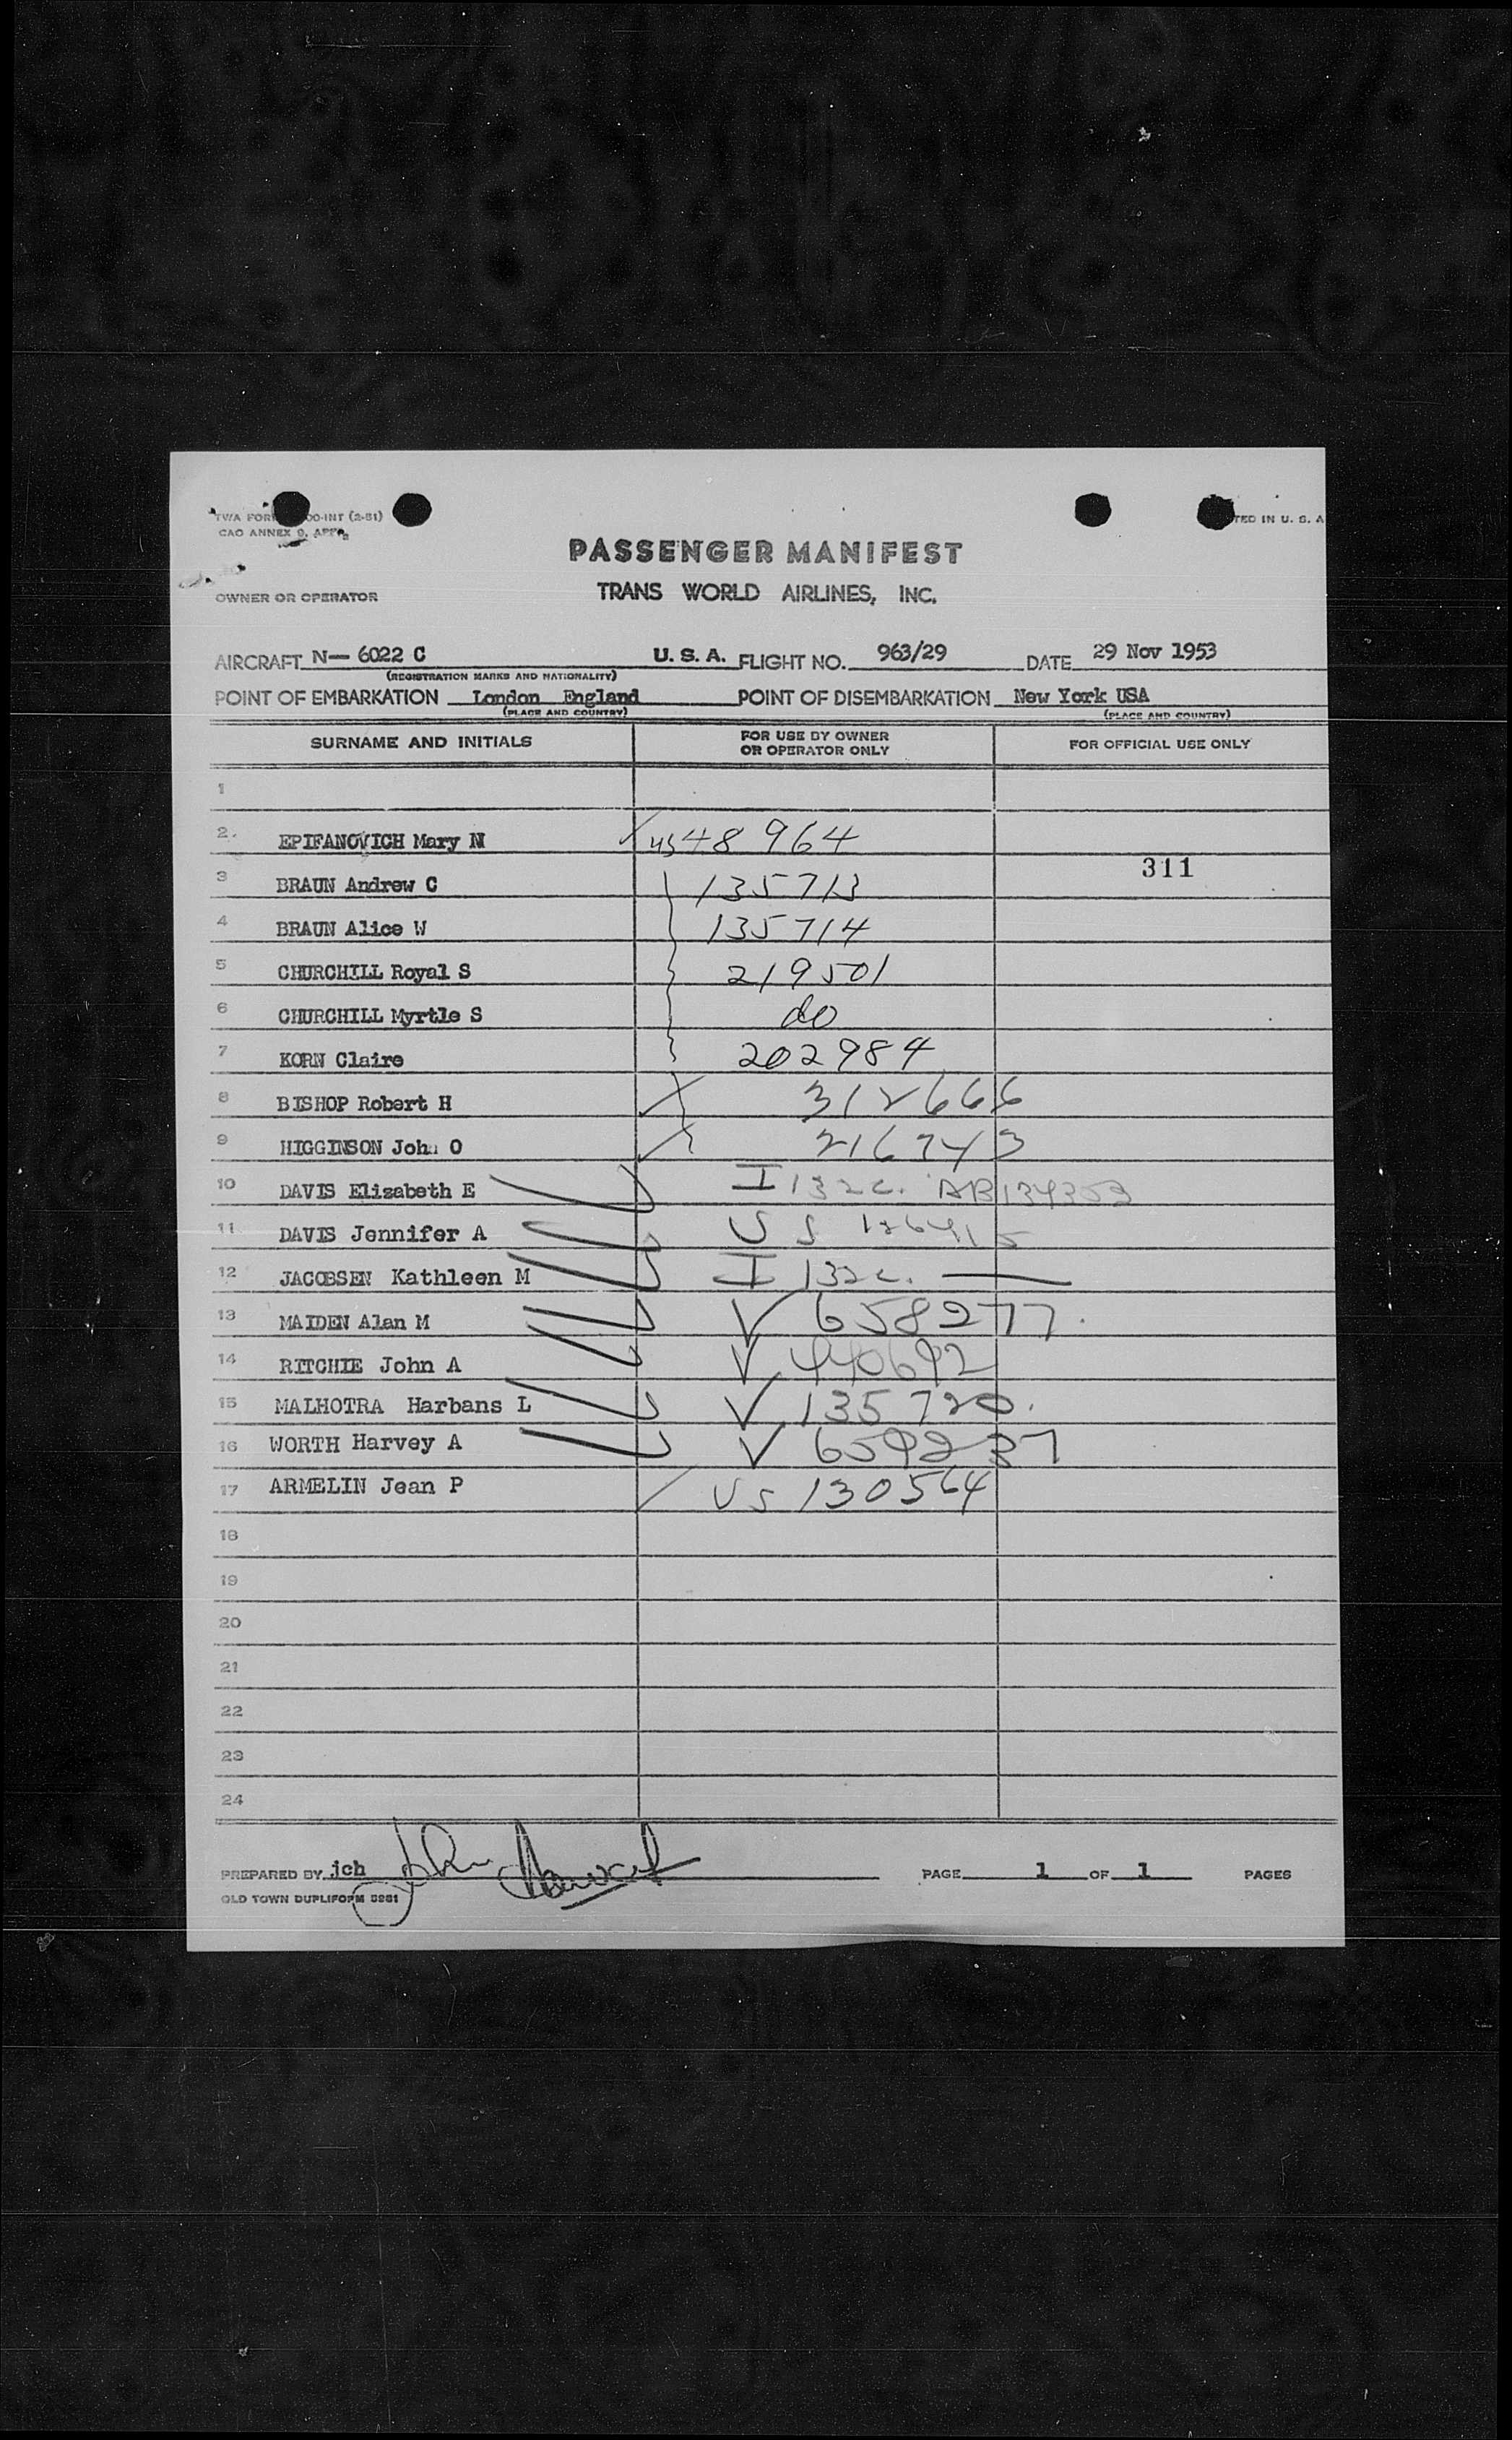 TWA FORM 00-INT (2-51)
CAO ANNEX 9, APP
TED IN U. S. A
PASSENGER MANIFEST
OWNER OR OPERATOR TRANS WORLD AIRLINES, INC.
AIRCRAFT N— 6022 C U. S. A. FLIGHT NO. 963/29 DATE 29 Nov 1953
(REGISTRATION MARKS AND NATIONALITY)
POINT OF EMBARKATION London England POINT OF DISEMBARKATION New York USA
(PLACE AND COUNTRY) (PLACE AND COUNTRY)
SURNAME AND INITIALS FOR USE BY OWNER OR OPERATOR ONLY FOR OFFICIAL USE ONLY
1
2. EPIFANOVICH Mary N US 48964
311
3 BRAUN Andrew C 135713
4 BRAUN Alice W 135714
5 CHURCHILL Royal S 219501
6 CHURCHILL Myrtle S do
7 KORN Claire 202984
8 BISHOP Robert H 312666
9 HIGGINSON John O 216743
10 DAVIS Elizabeth E I 132c.
11 DAVIS Jennifer A US
12 JACOBSEN Kathleen M I 132c. —
13 MAIDEN Alan M V 658277.
14 RITCHIE John A V 440692
15 MALHOTRA Harbans L V 135720.
16 WORTH Harvey A V 659237
17 ARMELIN Jean P US 130564
18
19
20
21
22
23
24
PREPARED BY jch PAGE 1 OF 1 PAGES
OLD TOWN DUPLIFORM 5981